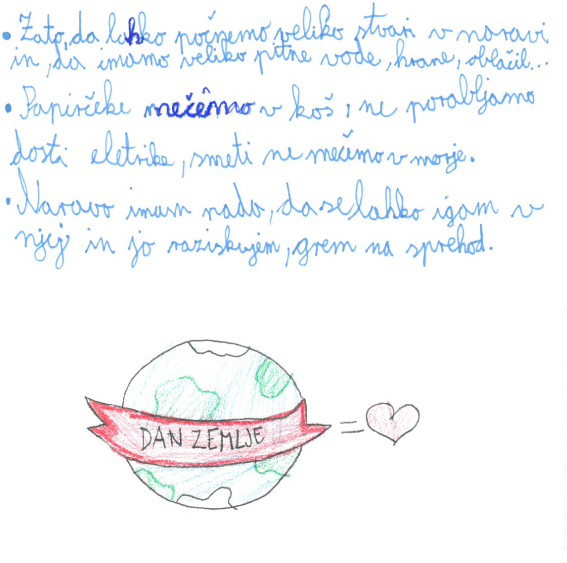 • Zato, da lahko počnemo veliko stvari v naravi
in, da imamo veliko pitne vode, hrane, oblačil...
• Papirčeke mečemo v koš, ne porabljamo
dosti eletrike, smeti ne mečemo v morje.
• Naravo imam rado, da se lahko igam v
njej in jo raziskujem, grem na sprehod.
DAN ZEMLJE =